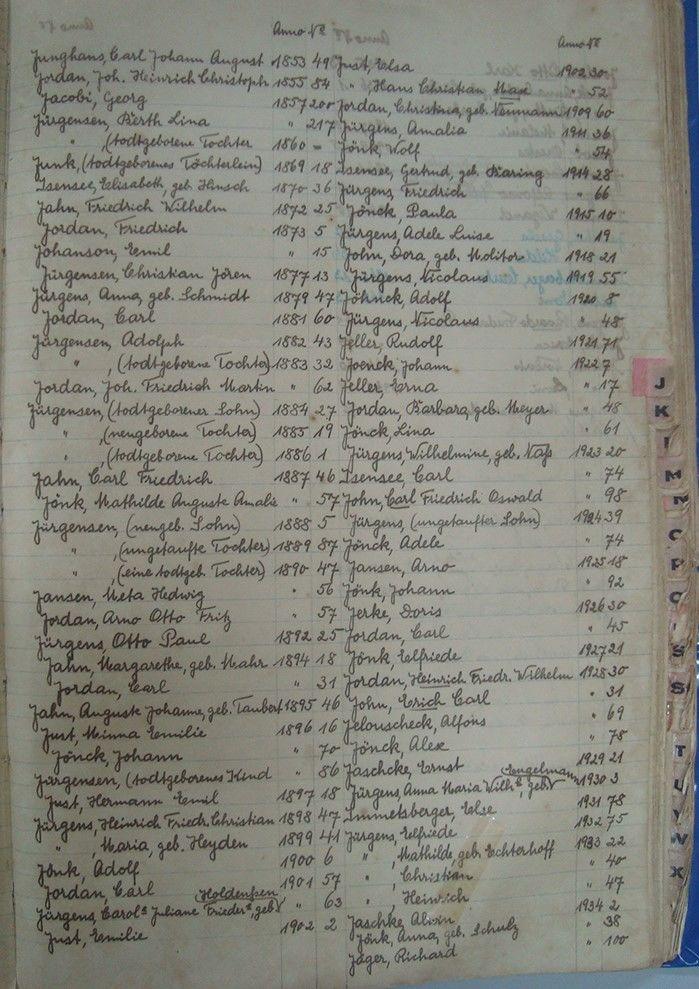 Anno №
Junghans, Carl Johann August 1853 49
Jordan, Joh. Heinrich Christoph 1855 84
Jacobi, Georg 1857 200
Jürgensen, Berth Lina " 217
" , (todtgeborene Tochter 1860 –
Junk, (todtgeborenes Töchterlein) 1869 18
Isensee, Elisabeth, geb. Hinsch 1870 36
Jahn, Friedrich Wilhelm 1872 25
Jordan, Friedrich 1873 5
Johanson, Emil " 15
Jürgensen, Christian Jören 1877 13
Jürgens, Anna, geb. Schmidt 1879 47
Jordan, Carl 1881 60
Jürgensen, Adolph 1882 43
" , (todtgeborene Tochter) 1883 32
Jordan, Joh. Friedrich Martin " 62
Jürgensen, (todtgeborener Sohn) 1884 27
" , (neugeborene Tochter) 1885 19
" , (todtgeborene Tochter) 1886 1
Jahn, Carl Friedrich 1887 46
Jönk, Mathilde Auguste Amalie " 57
Jürgensen, (neugeb. Sohn) 1888 5
" , (ungetaufte Tochter) 1889 87
" , (eine todtgeb. Tochter) 1890 47
Jansen, Meta Hedwig " 56
Jordan, Arno Otto Fritz " 57
Jürgens, Otto Paul 1892 25
Jahn, Margarethe, geb. Mahr 1894 18
Jordan, Carl " 31
Jahn, Auguste Johanne, geb. Taubert 1895 46
Just, Minna Emilie 1896 16
Jönck, Johann " 70
Jürgensen, (todtgeborenes Kind " 86
Just, Hermann Emil 1897 18
Jürgens, Heinrich Friedr. Christian 1898 47
" , Maria, geb. Heyden 1899 41
Jönk, Adolf 1900 6
Jordan, Carl 1901 57
Jürgens, Carol⁠ª Juliane Frieder⁠ª, geb. Holdenßen " 63
Just, Emilie 1902 2
Anno №
Just, Elsa 1902 30
" , Hans Christian Max " 52
Jordan, Christina, geb. Neumann 1909 60
Jürgens, Amalia 1911 36
Jönk, Wolf " 54
Isensee, Gertrud, geb. Karing 1914 28
Jürgens, Friedrich " 66
Jönck, Paula 1915 10
Jürgens, Adele Luise " 19
John, Dora, geb. Molitor 1918 21
Jürgens, Nicolaus 1919 55
Jöhnck, Adolf 1920 8
Jürgens, Nicolaus " 48
Jeller, Rudolf 1921 71
Joenck, Johann 1922 7
Jeller, Erna " 17
Jordan, Barbara, geb. Meyer " 48
Jönck, Lina " 61
Jürgens, Wilhelmine, geb. Naß 1923 20
Isensee, Carl " 74
John, Carl Friedrich Oswald " 98
Jürgens, (ungetaufter Sohn) 1924 39
Jönck, Adele " 74
Jansen, Arno 1925 18
Jönk, Johann " 92
Jerke, Doris 1926 30
Jordan, Carl " 45
Jönk, Elfriede 1927 21
Jordan, Heinrich Friedr. Wilhelm 1928 30
John, Erich Carl " 31
Jelouscheck, Alfons " 69
Jönck, Alex " 78
Jaschcke, Ernst 1929 21
Jürgens, Anna Maria Wilh⁠ᵉ, geb. Engelmann 1930 3
Immetsberger, Else 1931 78
Jürgens, Elfriede 1932 75
" , Mathilde, geb. Echterhoff 1933 22
" , Christian " 40
" , Heinrich " 47
Jaschke, Alwin 1934 2
Jönk, Anna, geb. Schulz " 38
Jäger, Richard " 100
J
K
M
O
P
S
S
T
U
W
X